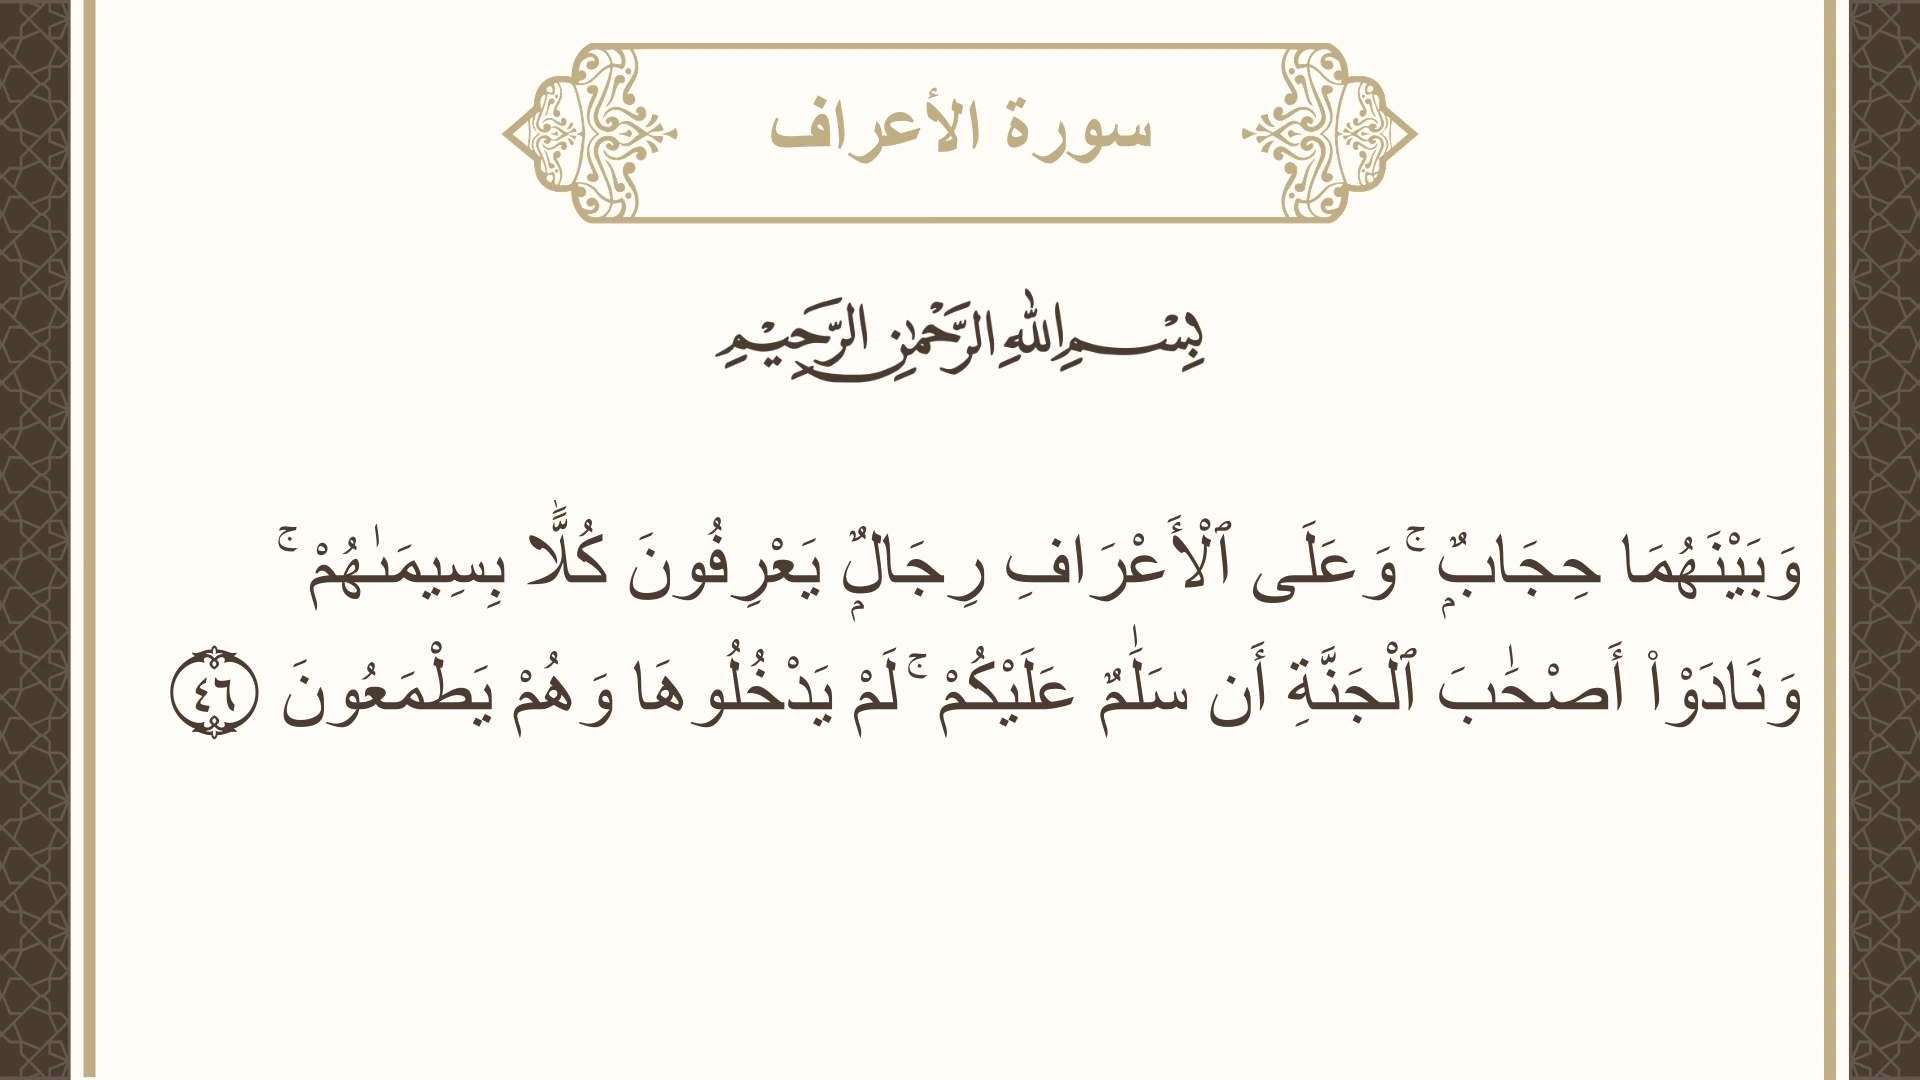 سورة الأعراف
بِسْمِ اللهِ الرَّحْمٰنِ الرَّحِيْمِ
وَبَيْنَهُمَا حِجَابٌۭ ۚ وَعَلَى ٱلْأَعْرَافِ رِجَالٌۭ يَعْرِفُونَ كُلًّۢا بِسِيمَىٰهُمْ ۚ
وَنَادَوْا۟ أَصْحَٰبَ ٱلْجَنَّةِ أَن سَلَٰمٌ عَلَيْكُمْ ۚ لَمْ يَدْخُلُوهَا وَهُمْ يَطْمَعُونَ ٤٦